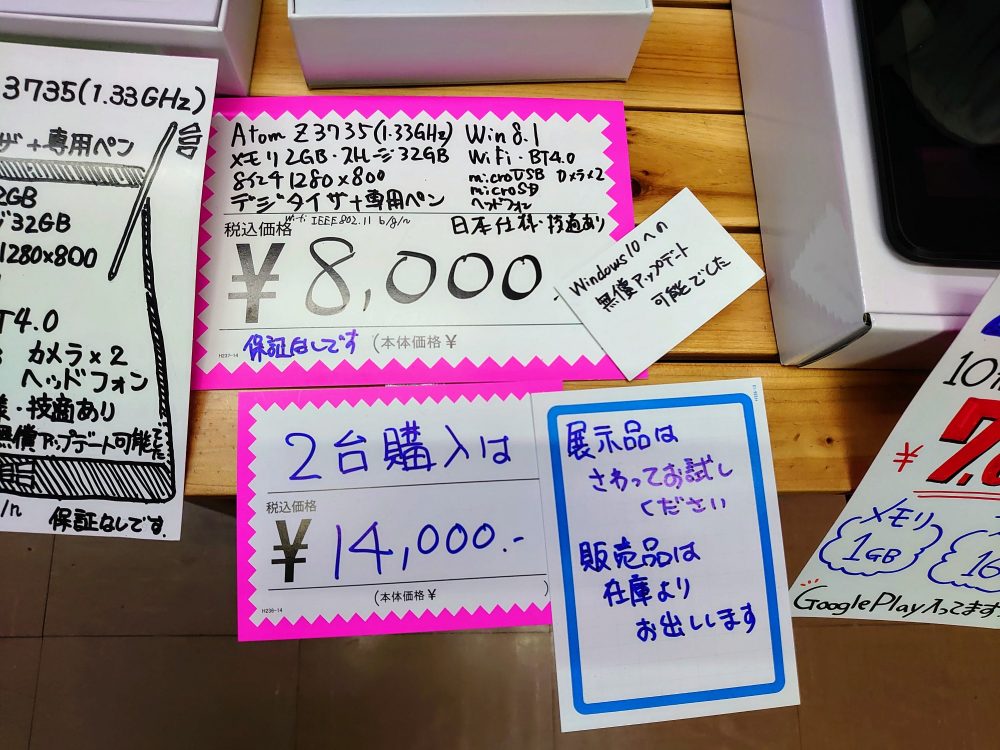 3735(1.33GHz)
ザ+専用ペン
2GB
ジ32GB
1280×800
T4.0
カメラ×2
ヘッドフォン
様・技適あり
無償アップデート可能でした
保証なしです.
Atom Z3735(1.33GHz)
メモリ2GB・ストレージ32GB
8インチ1280×800
デジタイザ+専用ペン
Wi-Fi IEEE802.11 b/g/n
Win 8.1
WiFi・BT4.0
microUSB カメラ×2
microSD
ヘッドフォン
日本仕様・技適あり
税込価格
¥8,000.
H237-14
保証なしです
(本体価格¥
Windows10への
無償アップデート
可能でした
2台購入は
税込価格
¥14,000.-
(本体価格¥ )
H236-14
展示品は
さわってお試し
ください
販売品は
在庫より
お出しします
10
¥7.
メモリ
1GB
16
GooglePlay入ってます